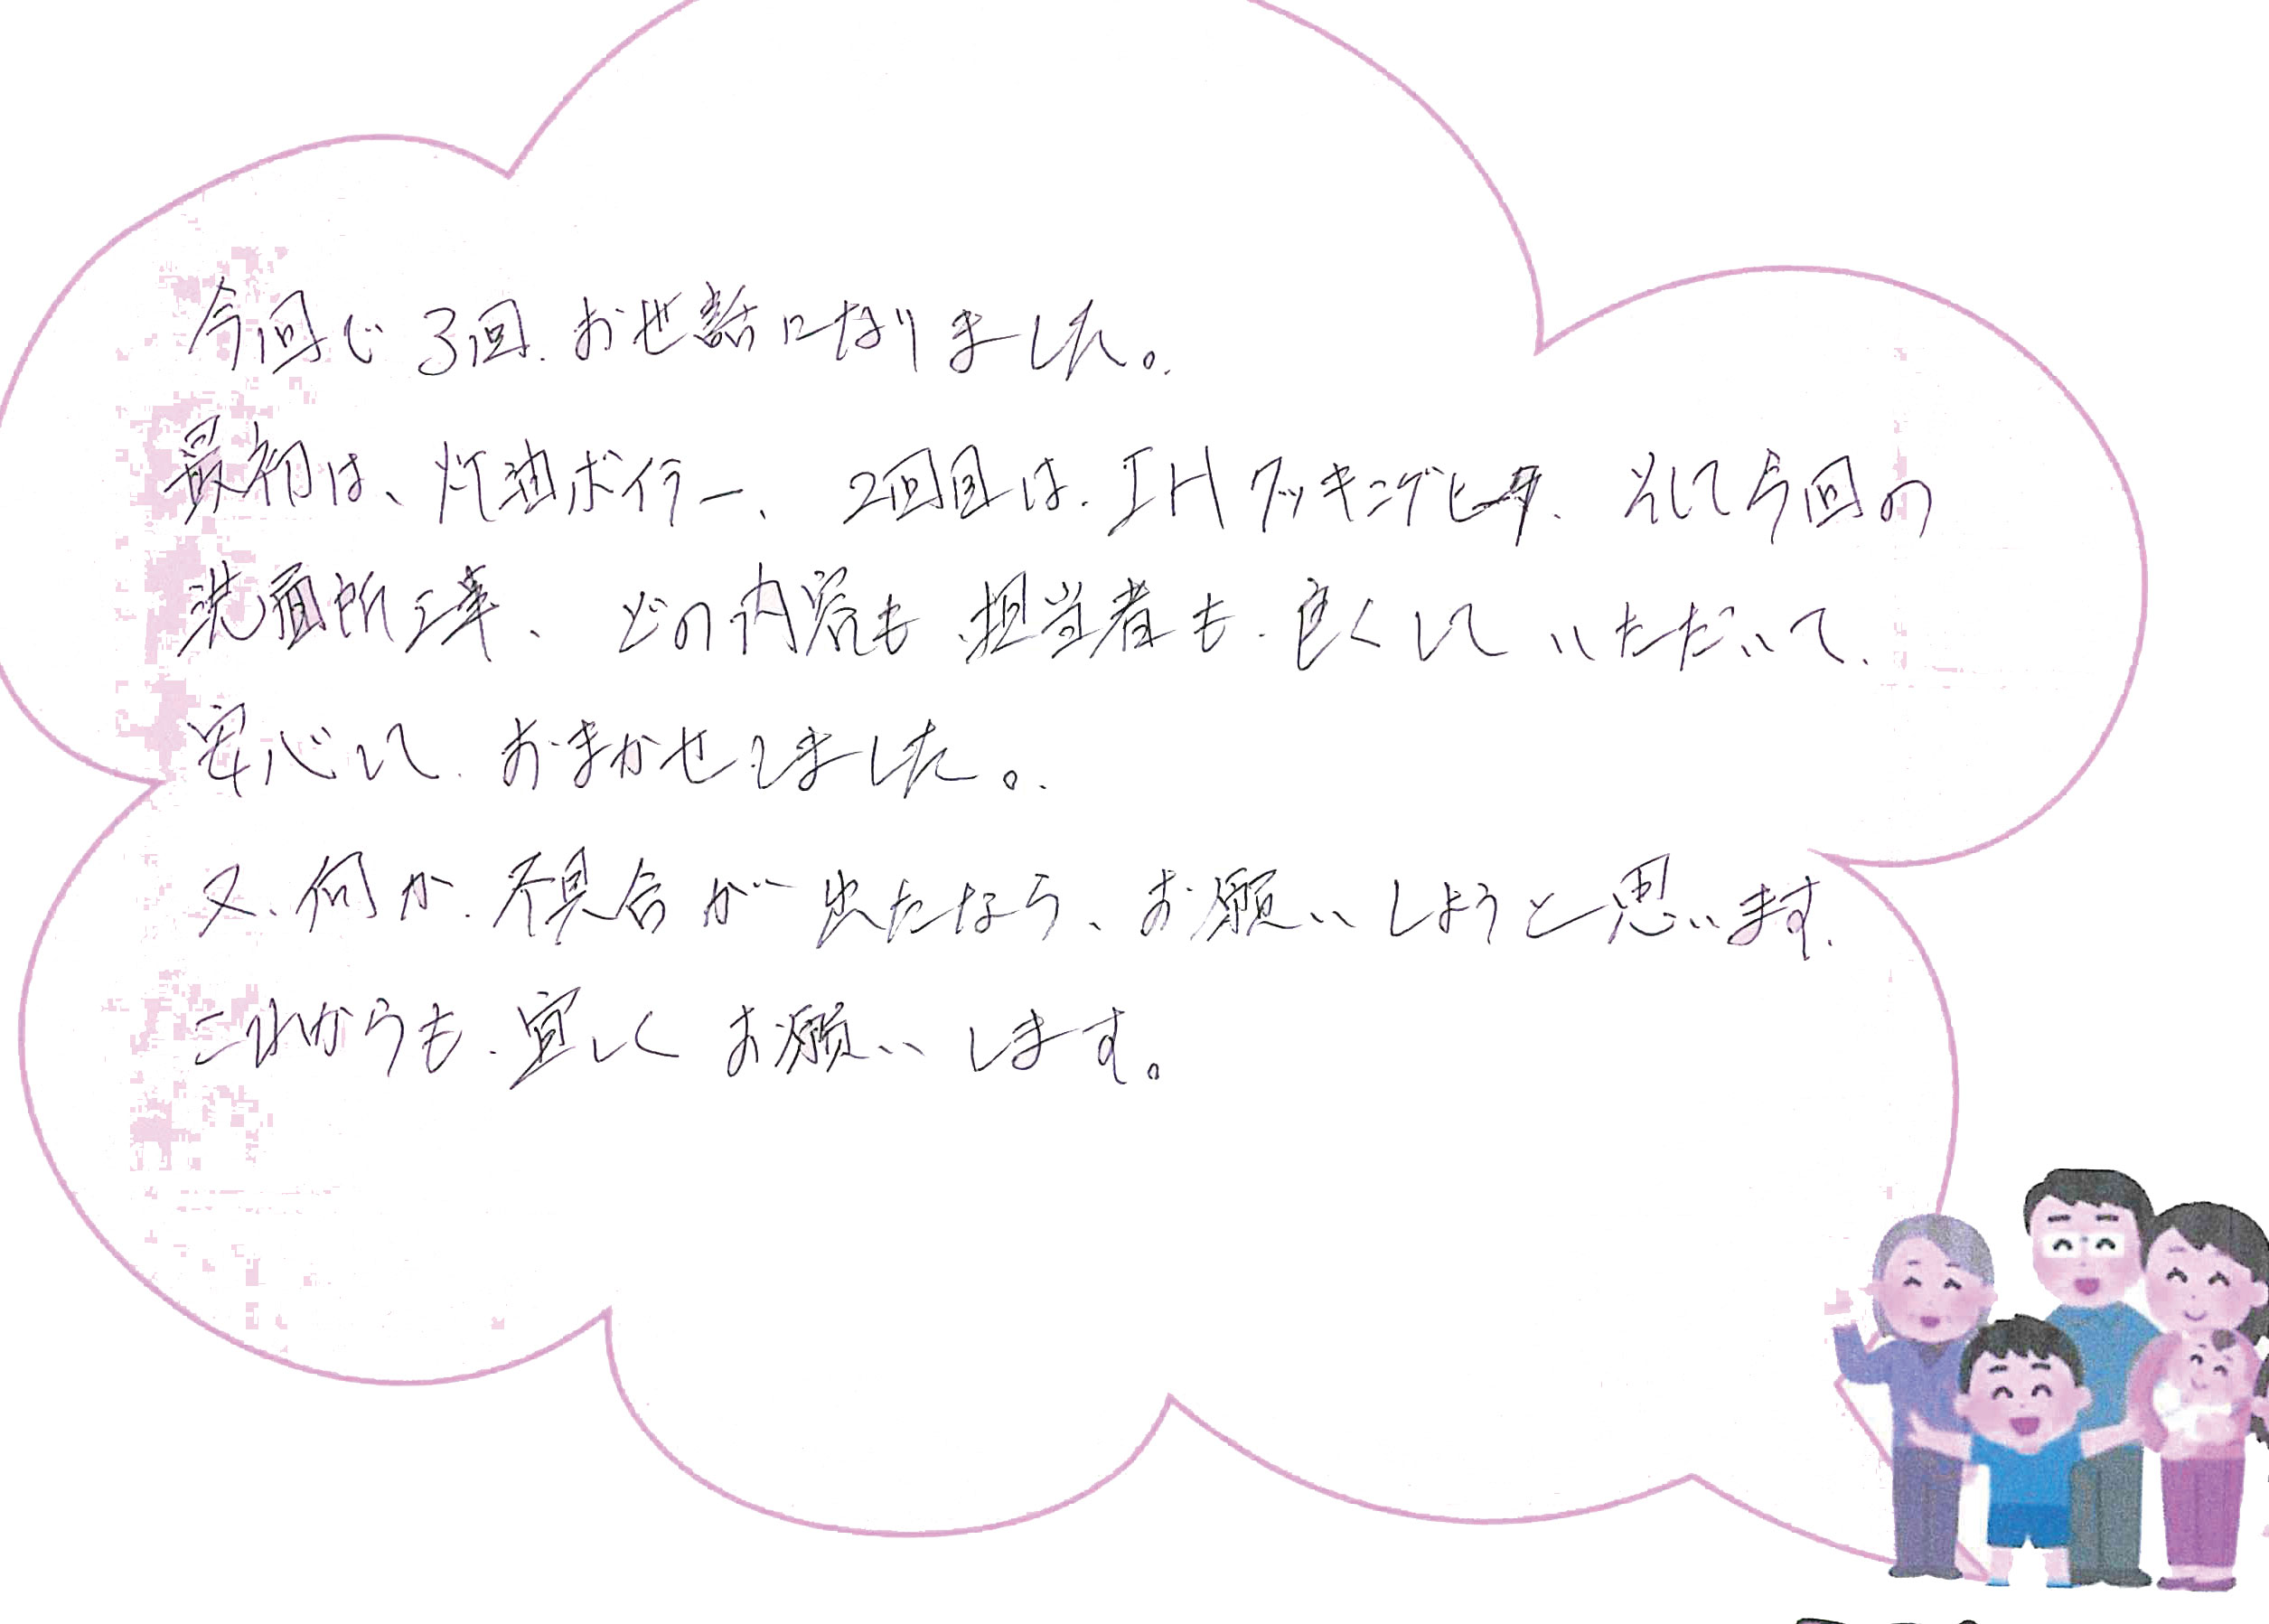 今回で3回、お世話になりました。
最初は、灯油ボイラー、2回目は、IHクッキングヒータ、そして今回の
洗面所工事、どの内容も、担当者も、良くしていただいて、
安心して、おまかせしました。
又、何か、不具合が出たなら、お願いしようと思います。
これからも、宜しくお願いします。